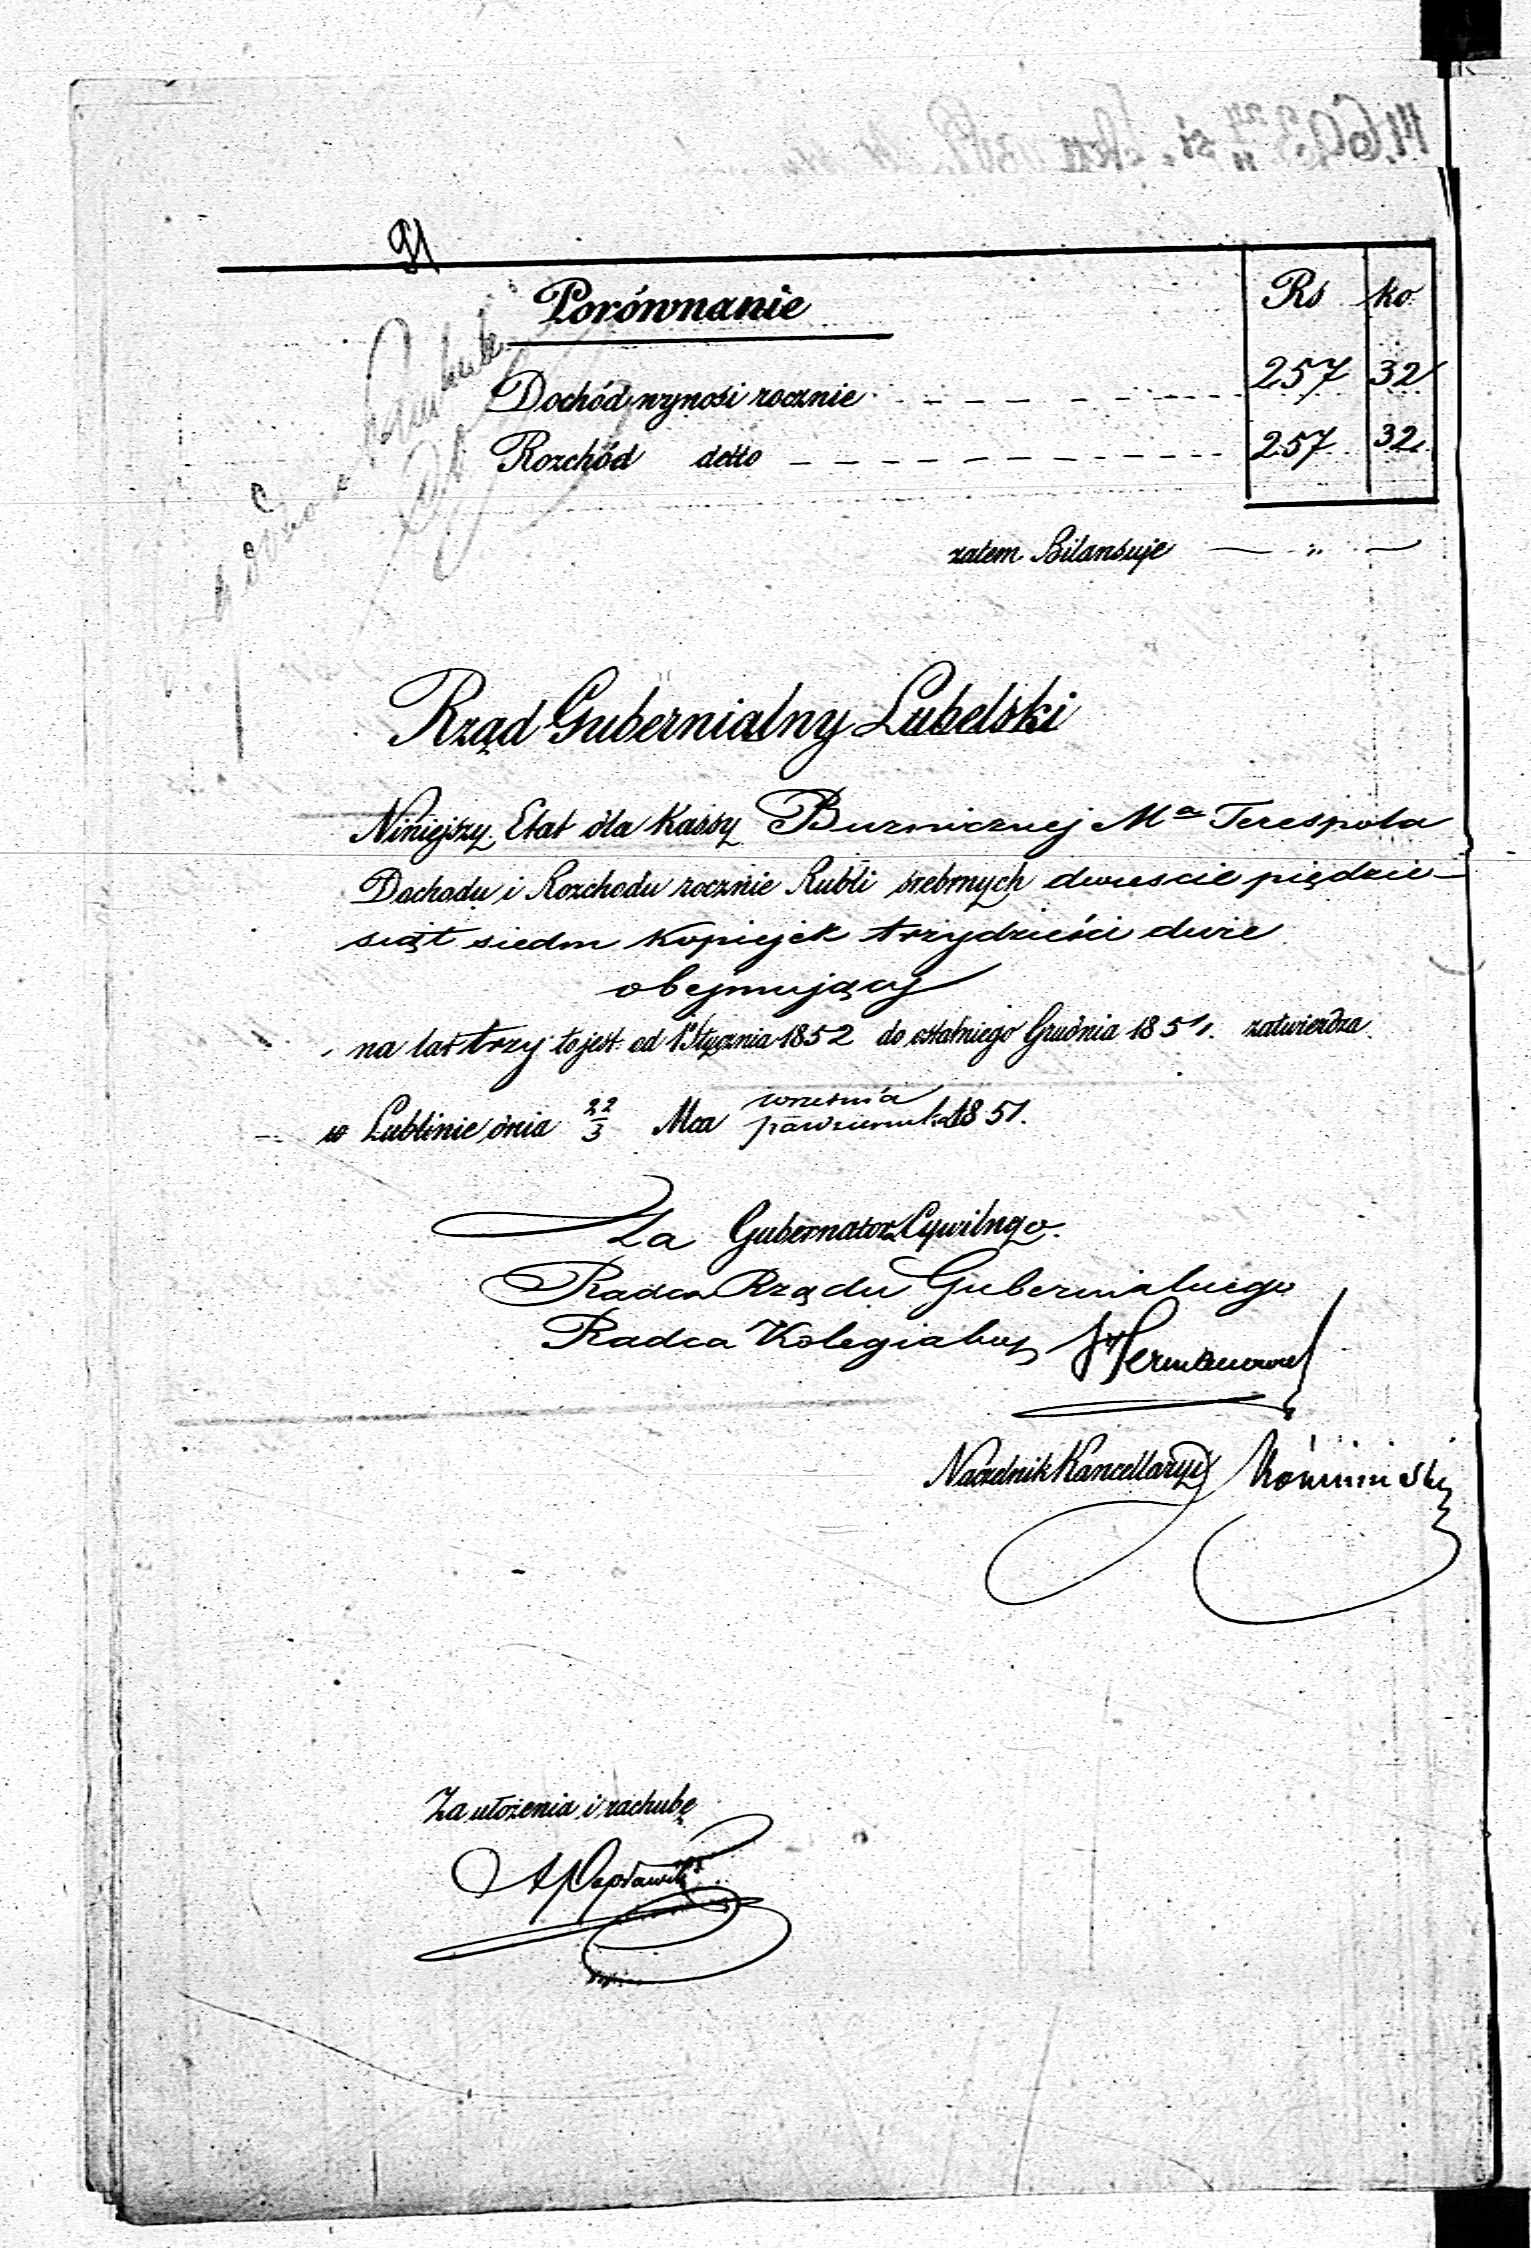 Porównanie
Rs ko
Dochód wynosi rocznie 257 32
Rozchód detto 257 32
zatem Bilansuje — „ —
Rząd Gubernialny Lubelski
Niniejszy Etat dla Kassy Buznicznej Mᵃ Terespola
Dochodu i Rozchodu rocznie Rubli srebrnych dwieście piędzie-
siąt siedm kopiejek trzydzieści dwie
obejmujący
na lat trzy to jest od 1 Stycznia 1852 do ostatniego Grudnia 1854 zatwierdza
w Lublinie dnia 22/3 Mca września/października 1851.
Za Gubernatora Cywilnego.
Radca Rządu Gubernialnego
Radca Kolegialny
Naczelnik Kancellaryi
Za ułożenia i rachubę